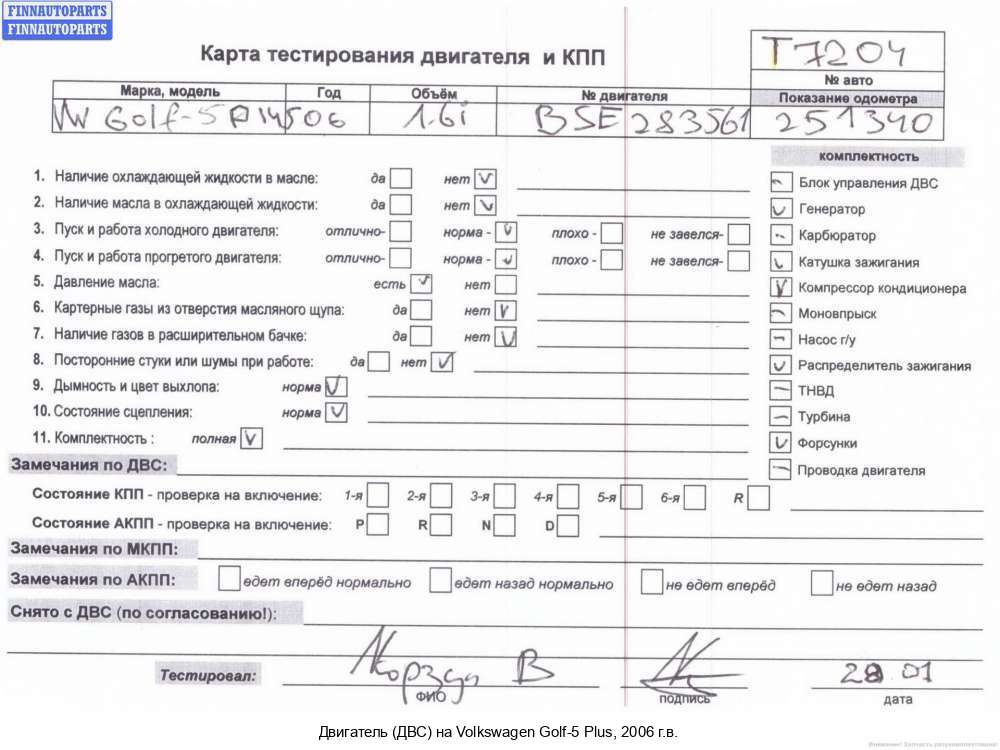 FINNAUTOPARTS
FINNAUTOPARTS
Карта тестирования двигателя и КПП
T7204
№ авто
Марка, модель Год Объём № двигателя Показание одометра
VW Golf-5 06 1.6i BSE 283561 251340
комплектность
1. Наличие охлаждающей жидкости в масле: да нет
2. Наличие масла в охлаждающей жидкости: да нет
3. Пуск и работа холодного двигателя: отлично- норма - плохо - не завелся-
4. Пуск и работа прогретого двигателя: отлично- норма - плохо - не завелся-
5. Давление масла: есть нет
6. Картерные газы из отверстия масляного щупа: да нет
7. Наличие газов в расширительном бачке: да нет
8. Посторонние стуки или шумы при работе: да нет
9. Дымность и цвет выхлопа: норма
10. Состояние сцепления: норма
11. Комплектность : полная
Блок управления ДВС
Генератор
Карбюратор
Катушка зажигания
Компрессор кондиционера
Моновпрыск
Насос г/у
Распределитель зажигания
ТНВД
Турбина
Форсунки
Проводка двигателя
Замечания по ДВС:
Состояние КПП - проверка на включение: 1-я 2-я 3-я 4-я 5-я 6-я R
Состояние АКПП - проверка на включение: P R N D
Замечания по МКПП:
Замечания по АКПП: едет вперёд нормально едет назад нормально не едет вперёд не едет назад
Снято с ДВС (по согласованию!):
Тестировал: В 28.01
ФИО подпись дата
Двигатель (ДВС) на Volkswagen Golf-5 Plus, 2006 г.в.
Внимание! Запчасть разукомплектована!